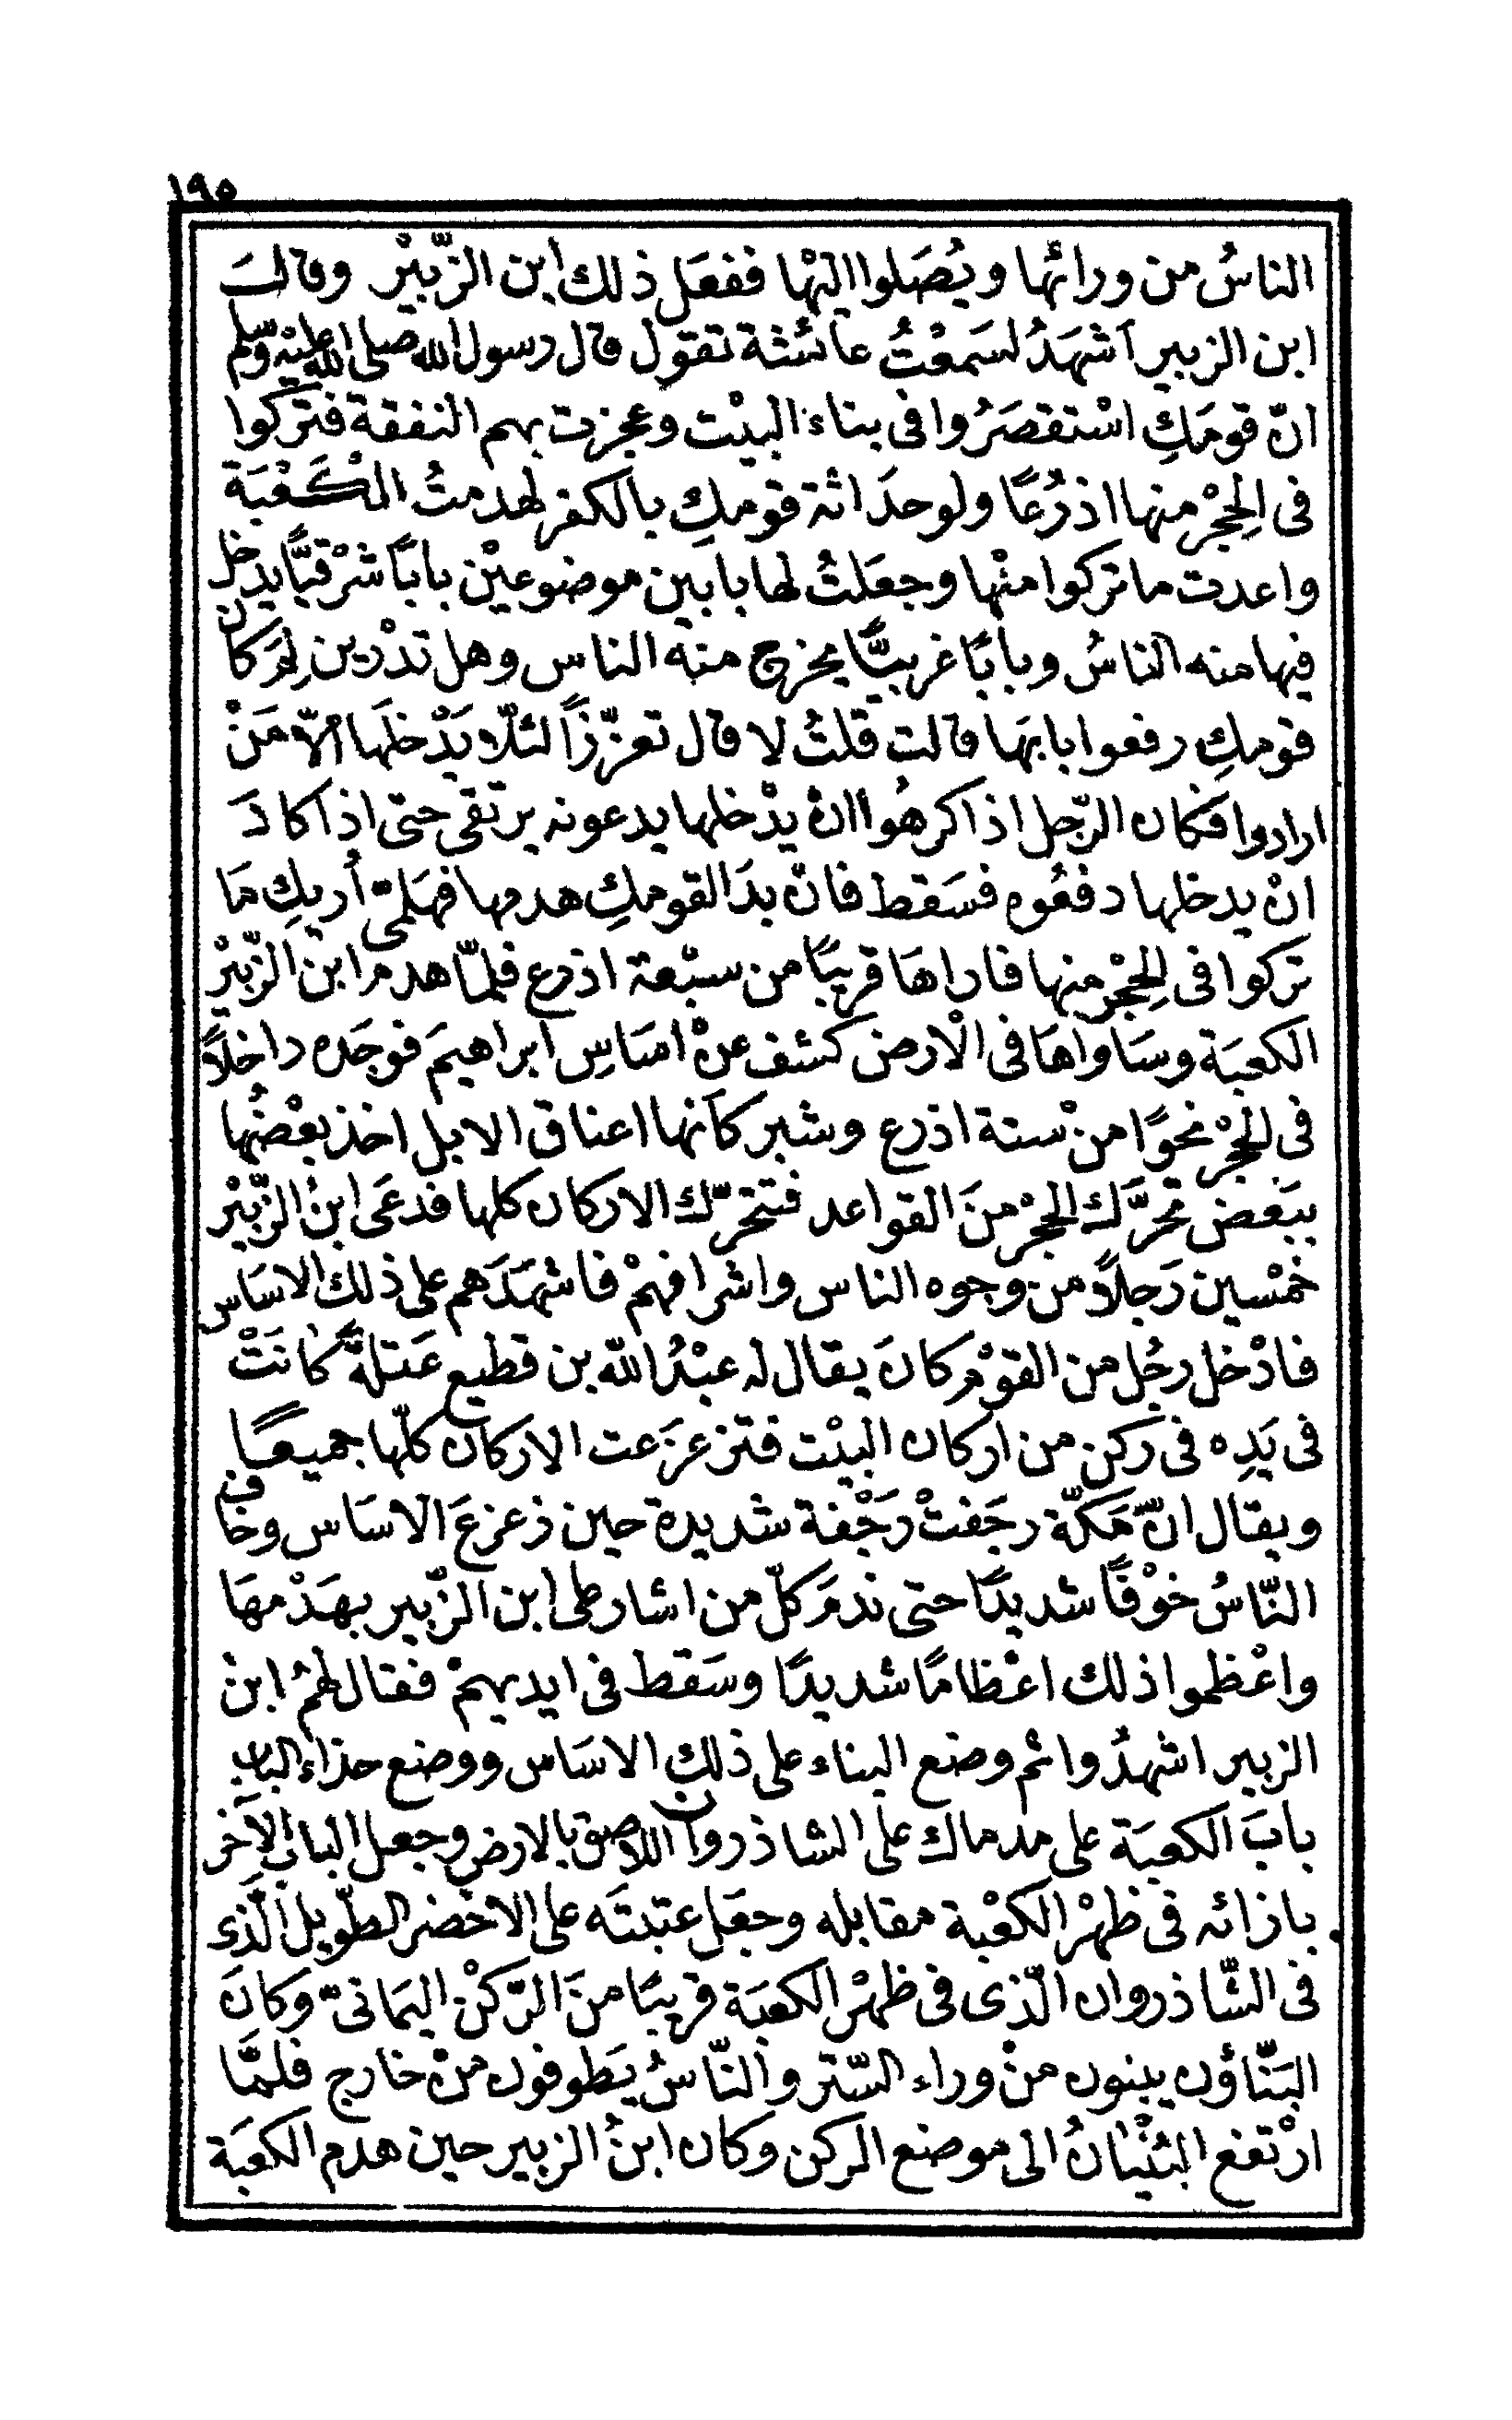 ١٩٥
الناسُ من ورائها ويُصَلوا اليْها ففعَل ذلك ابن الزّبيْر وقالَ
ابن الزبير اَشهَدُ لسَمعْتُ عائشة تقول قال رسول الله صلى الله عليْه وسّلم
انّ قومَكِ اسْتقصَرُوا فى بناء البيْت وعجزت بهم النفقة فتركوا
فى الحِجْر منها اذرُعًا ولو حدَاثة قومكِ بالكفر لهدمتُ الكَعْبَة
واعدت ما تركوا منْها وجعَلتُ لها بابين موضوعيْن بابًا شرْقيًّا يدخل
فيها منه الناسُ وبابًا غربيًّا يخرج منه الناس وهل تدْرين لِمَ كان
قومكِ رفعوا بابهَا قالت قلتُ لا قال تعزّزاً لئلّا يَدْخلَها الّا مَنْ
ارادوا فَكان الرّجل اذا كرهُوا انْ يدْخلها يدعونه يرتقى حتى اذا كادَ
انْ يدخلها دفعُوه فسَقط فانْ بدَا لقومكِ هدمها فهَلمّى أريكِ مَا
تركوا فى الحِجْر منها فاراهَا قريبًا من سبْعة اذرع فلمّا هدم ابن الزّبيْر
الكعبَة وسَاواهَا فى الْارض كشف عنْ اسَاسِ ابراهيمَ فوجَده داخلاً
فى الحِجْر نحوًا منْ ستة اذرع وشبر كاَنها اعناق الابل اخذ بعْضُها
ببَعض تحرَّك الحجْر منَ القواعد فتتحرّك الاركان كلها فدعَى ابنُ الزّبيْر
خمْسين رَجلاً من وجوه الناس واشرافهمْ فاشهَدَهم على ذلك الاسَاس
فادْخل رجُل من القوْم كانَ يقال له عبْدُ الله بن قطيع عَتلةً كانَتْ
فى يَدِه فى ركن من اركان البيْت فتزعزَعت الاركان كلّها جميعًا
ويقال انّ مَكّة رجَفتْ رَجْفة شديدة حين زعزعَ الاسَاس وخاف
النّاسُ خوْفًا شديدًا حتى ندمَ كلّ من اشار على ابن الزّبير بهَدْمهَا
واعْظموا ذلك اعْظامًا شديدًا وسَقط فى ايديهمْ فقال لهُمُ ابنْ
الزبير اشهدُوا ثم وضع البناء على ذلك الاسَاس ووضع حذاء الباب
بابَ الكعبَة على مدماك على الشاذروان اللاصق بالارض وجعل الباب الآخر
بازائه فى ظهْر الكعْبة مقابله وجعَل عتبتَه على الاخضر الطّويل الّذى
فى الشّاذروان الّذى فى ظهْر الكعبَة قريبًا منَ الرّكنْ اليمَانىّ وكانَ
البَنّاؤن يبنون منْ وراء السّتر والنّاسُ يَطوفون منْ خارج فلمَّا
ارْتفع البُنْيَانُ الى موضع الركن وكان ابنُ الزبير حين هدم الكعبَة